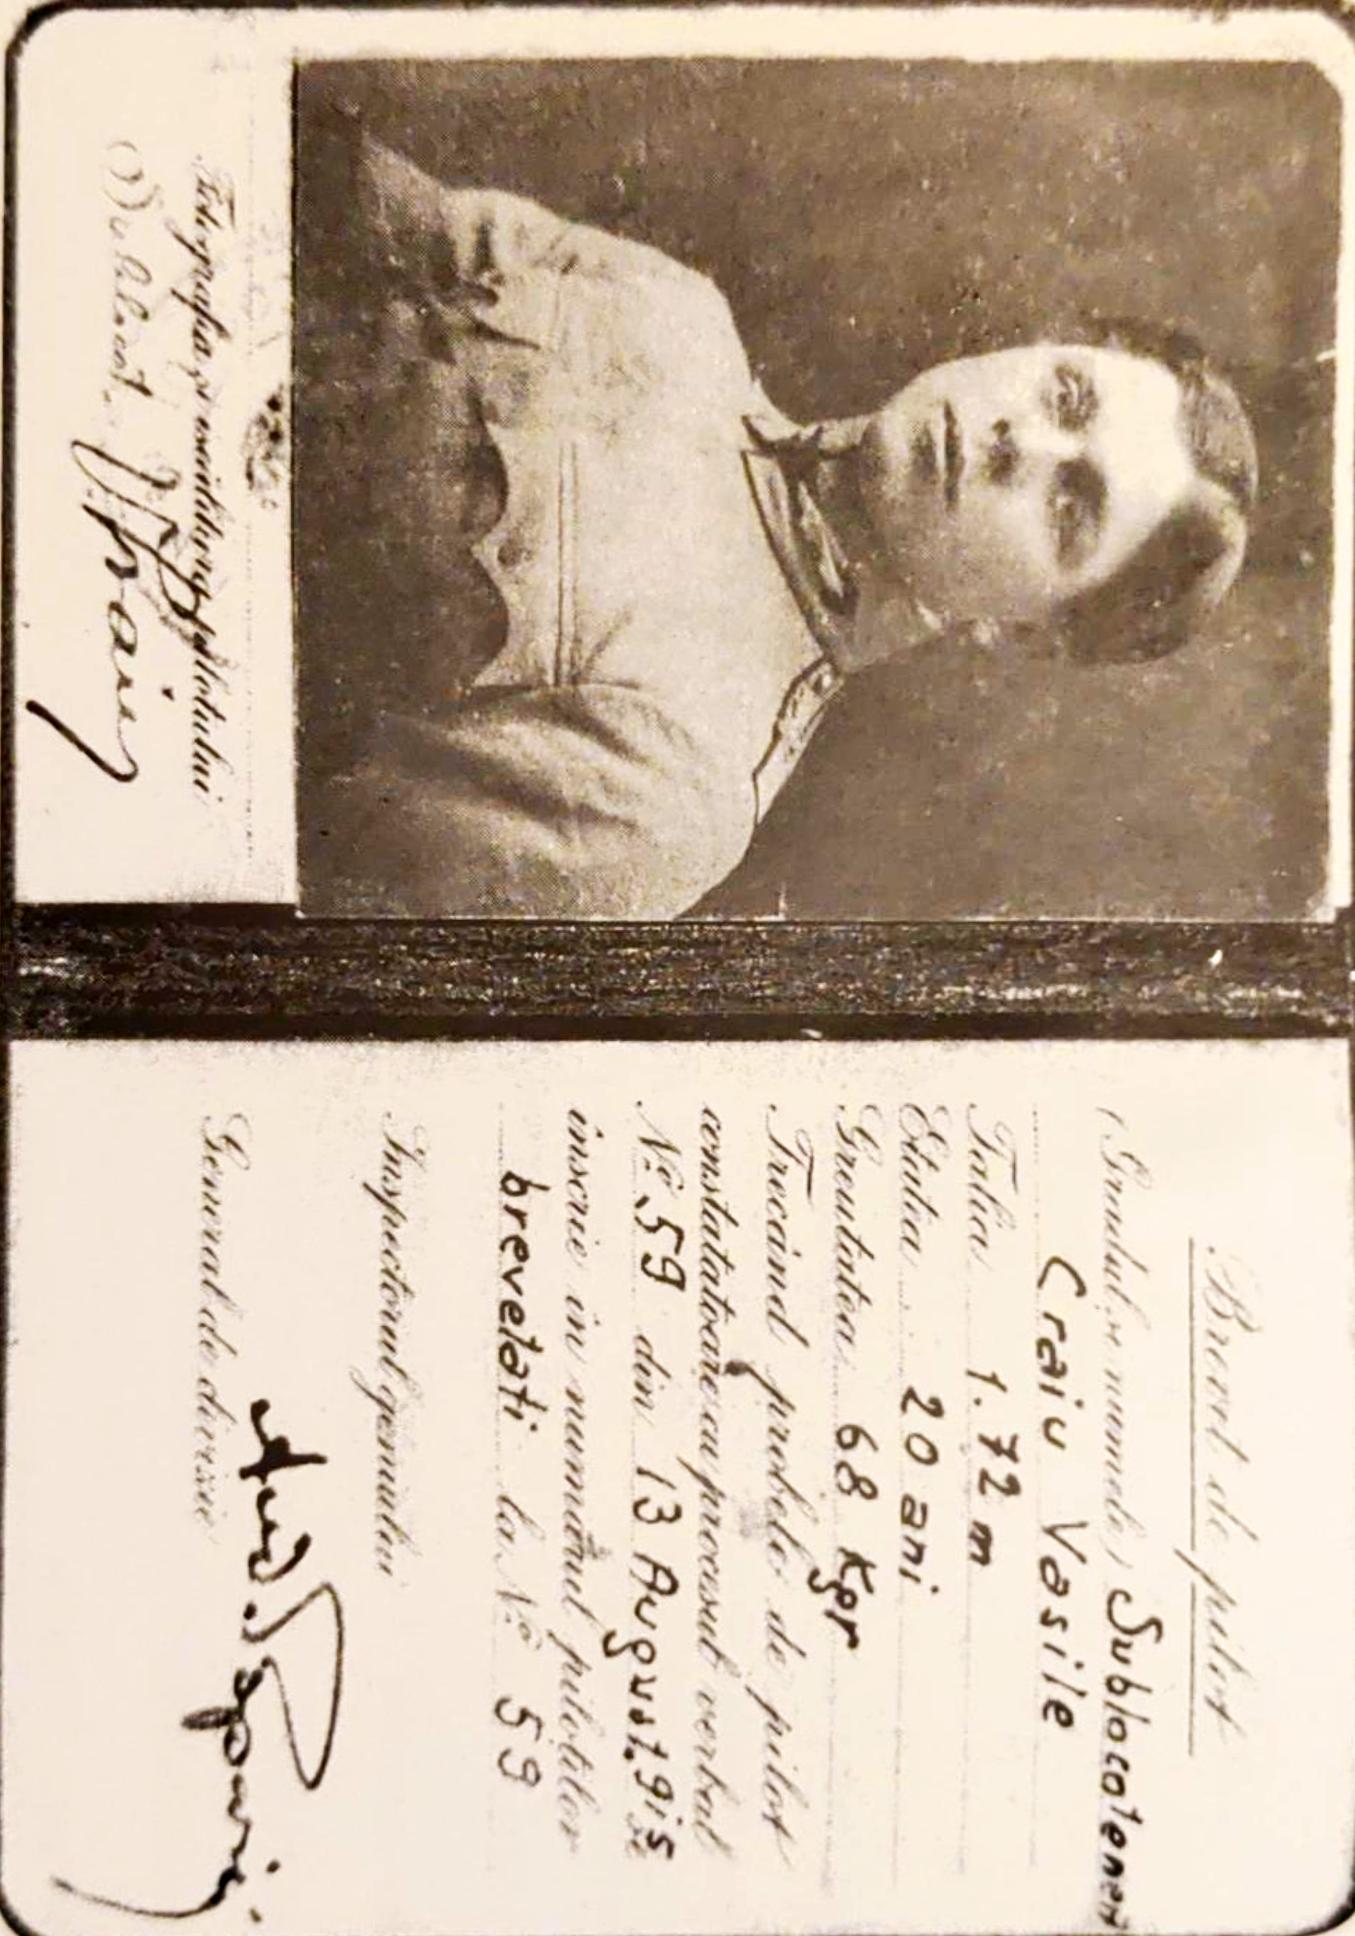 Fotografia și iscălitura pilotului
Sublocot. V. Craiu
Brevet de pilot
(Gradul și numele) Sublocotenent
Craiu Vasile
Talia 1.72 m
Etatea 20 ani
Greutatea 68 Kgr
Trecând probele de pilot
constatatoare cu procesul verbal
Nº 59 din 13 August. 915 se
înscrie în numărul piloților
brevetati la Nº 59
Inspectorul geniului
General de divizie